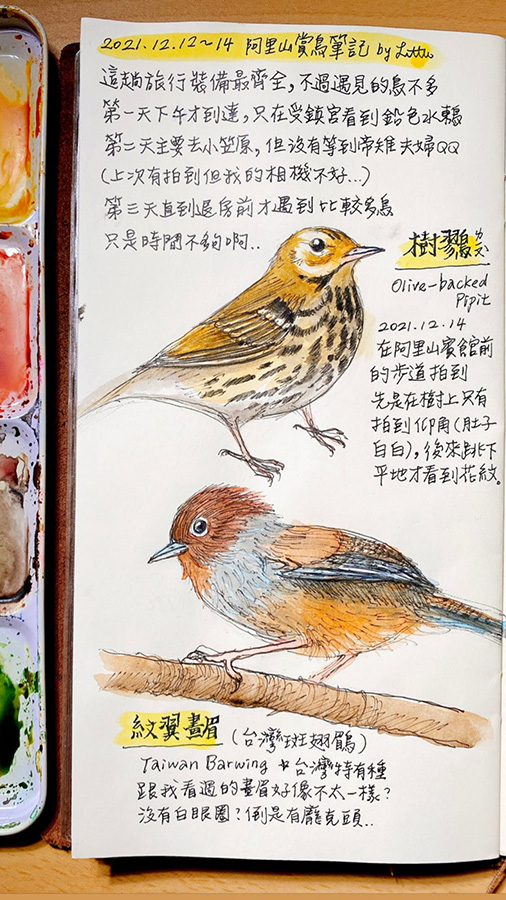 2021.12.12~14 阿里山賞鳥筆記 by Littu
這趟旅行裝備最齊全,不過遇見的鳥不多
第一天下午才到達,只在受鎮宮看到鉛色水鶇
第二天主要去小笠原,但沒有等到帝雉夫婦QQ
(上次有拍到但我的相機不好...)
第三天直到退房前才遇到比較多鳥
只是時間不夠啊..
樹鷚 ㄌㄧㄡˋ
Olive-backed
Pipit
2021.12.14
在阿里山賓館前
的步道拍到
先是在樹上只有
拍到仰角(肚子
白白),後來跳下
平地才看到花紋。
紋翼畫眉 (台灣斑翅鶥)
Taiwan Barwing ★台灣特有種
跟我看過的畫眉好像不太一樣?
沒有白眼圈?倒是有龐克頭..